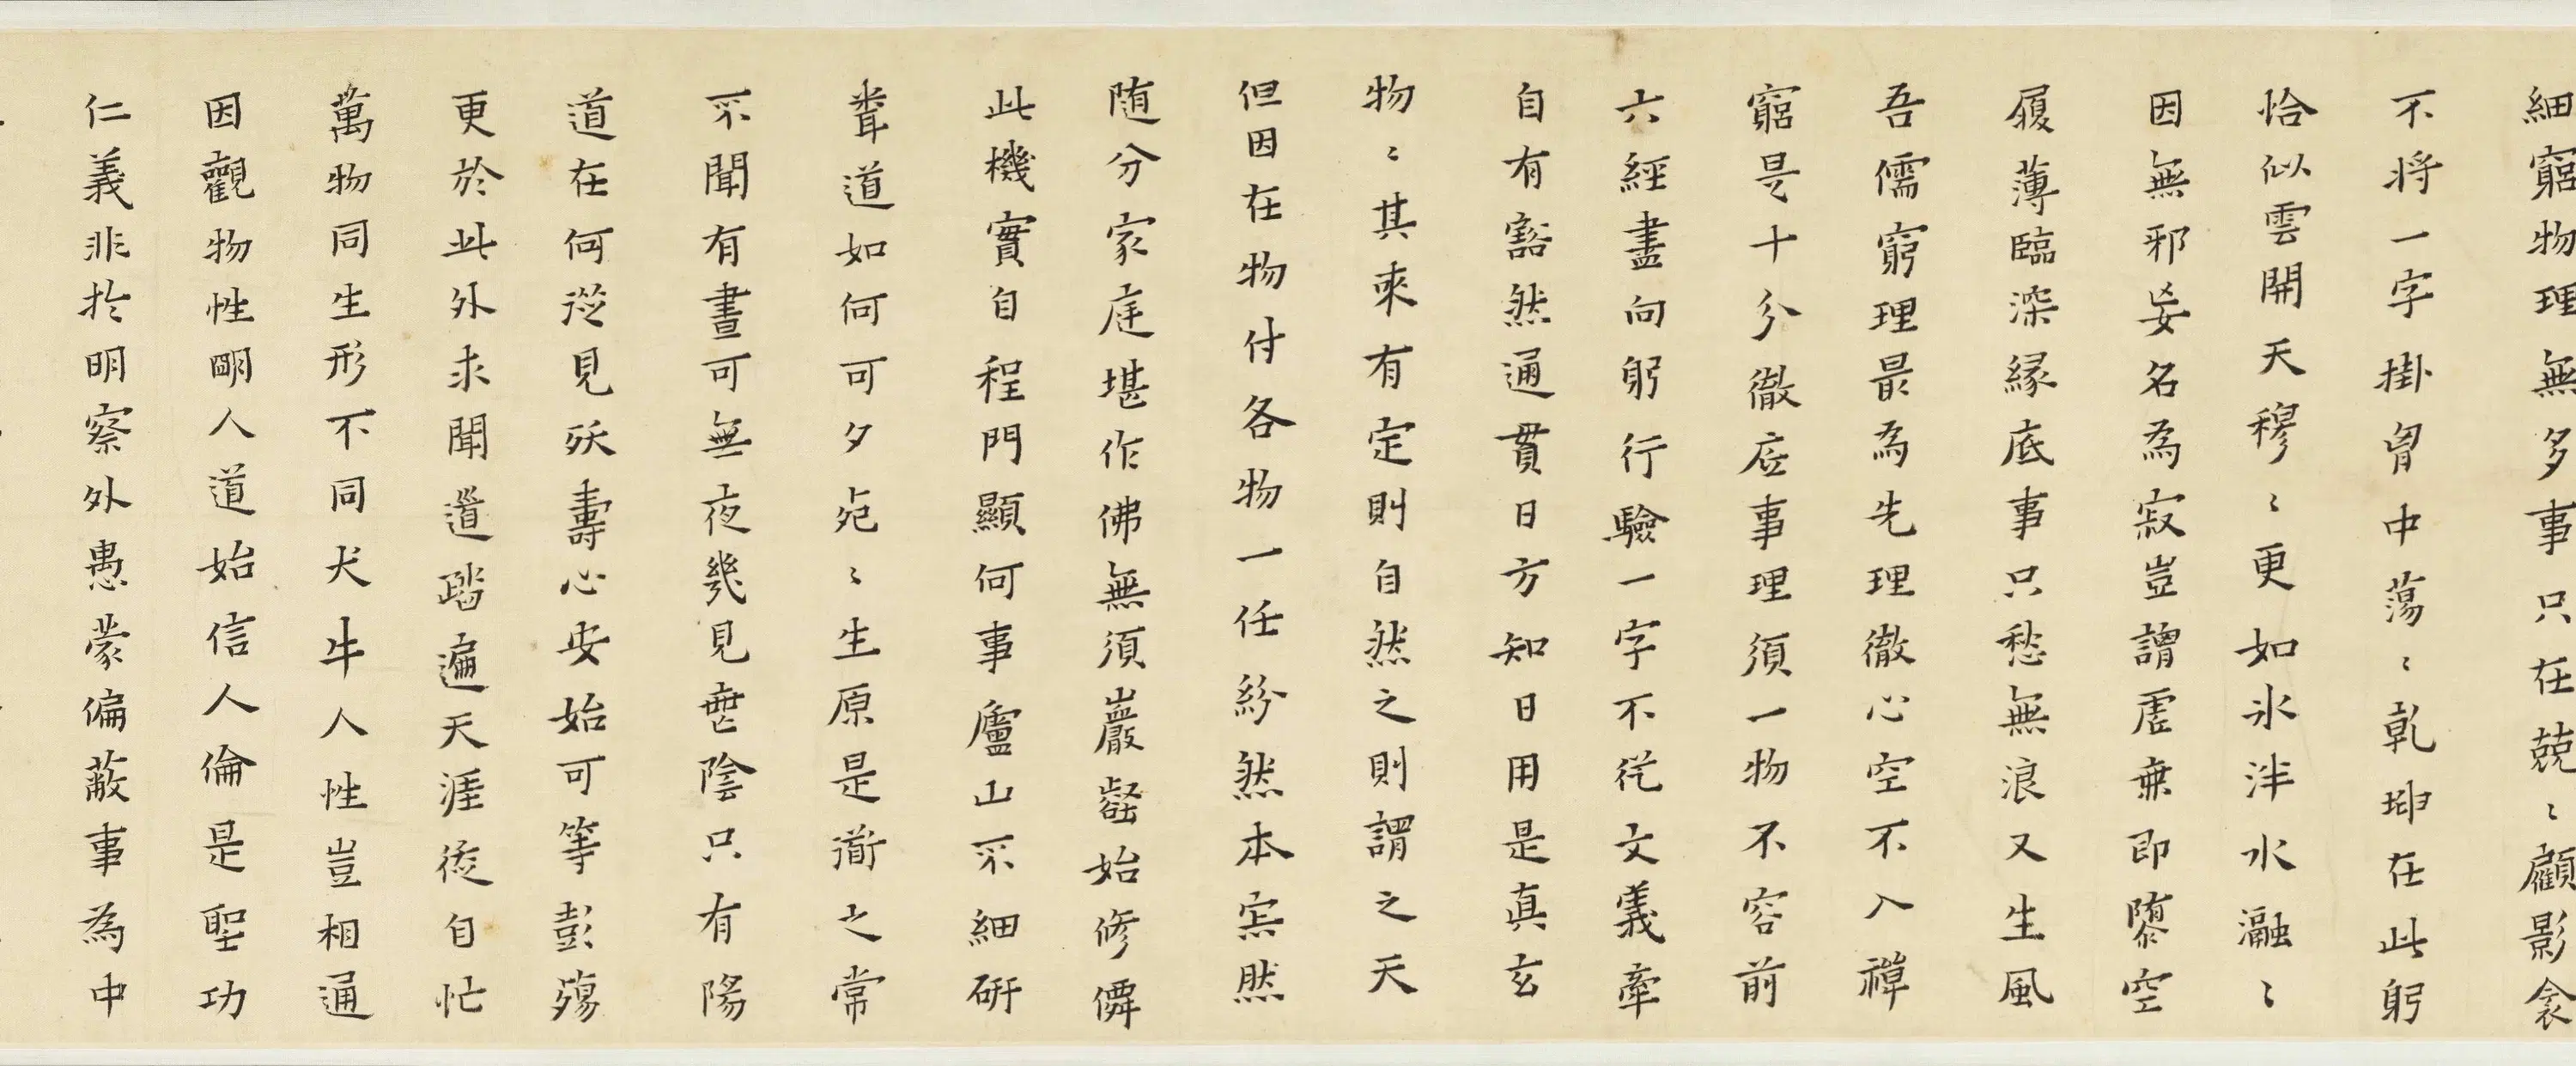 細窮物理無多事只在兢〻顧影衾
不将一字掛胷中蕩〻乾坤在此躬
恰似雲開天穆〻更如氷泮水瀜〻
因無邪妄名為寂豈謂虛無即墮空
履薄臨深縁底事只愁無浪又生風
吾儒窮理最為先理徹心空不入禪
窮是十分徹底事理須一物不容前
六經盡向躬行驗一字不從文義牽
自有豁然通貫日方知日用是真玄
物〻其來有定則自然之則謂之天
但因在物付各物一任紛然本寂然
随分家庭堪作佛無須巖壑始修僊
此機實自程門顯何事廬山不細研
聞道如何可夕死〻生原是道之常
不聞有晝可無夜幾見無陰只有陽
道在何從見殀壽心安始可等彭殤
更於此外求聞道踏遍天涯徒自忙
萬物同生形不同犬牛人性豈相通
因觀物性明人道始信人倫是聖功
仁義非於明察外愚蒙偏蔽事為中